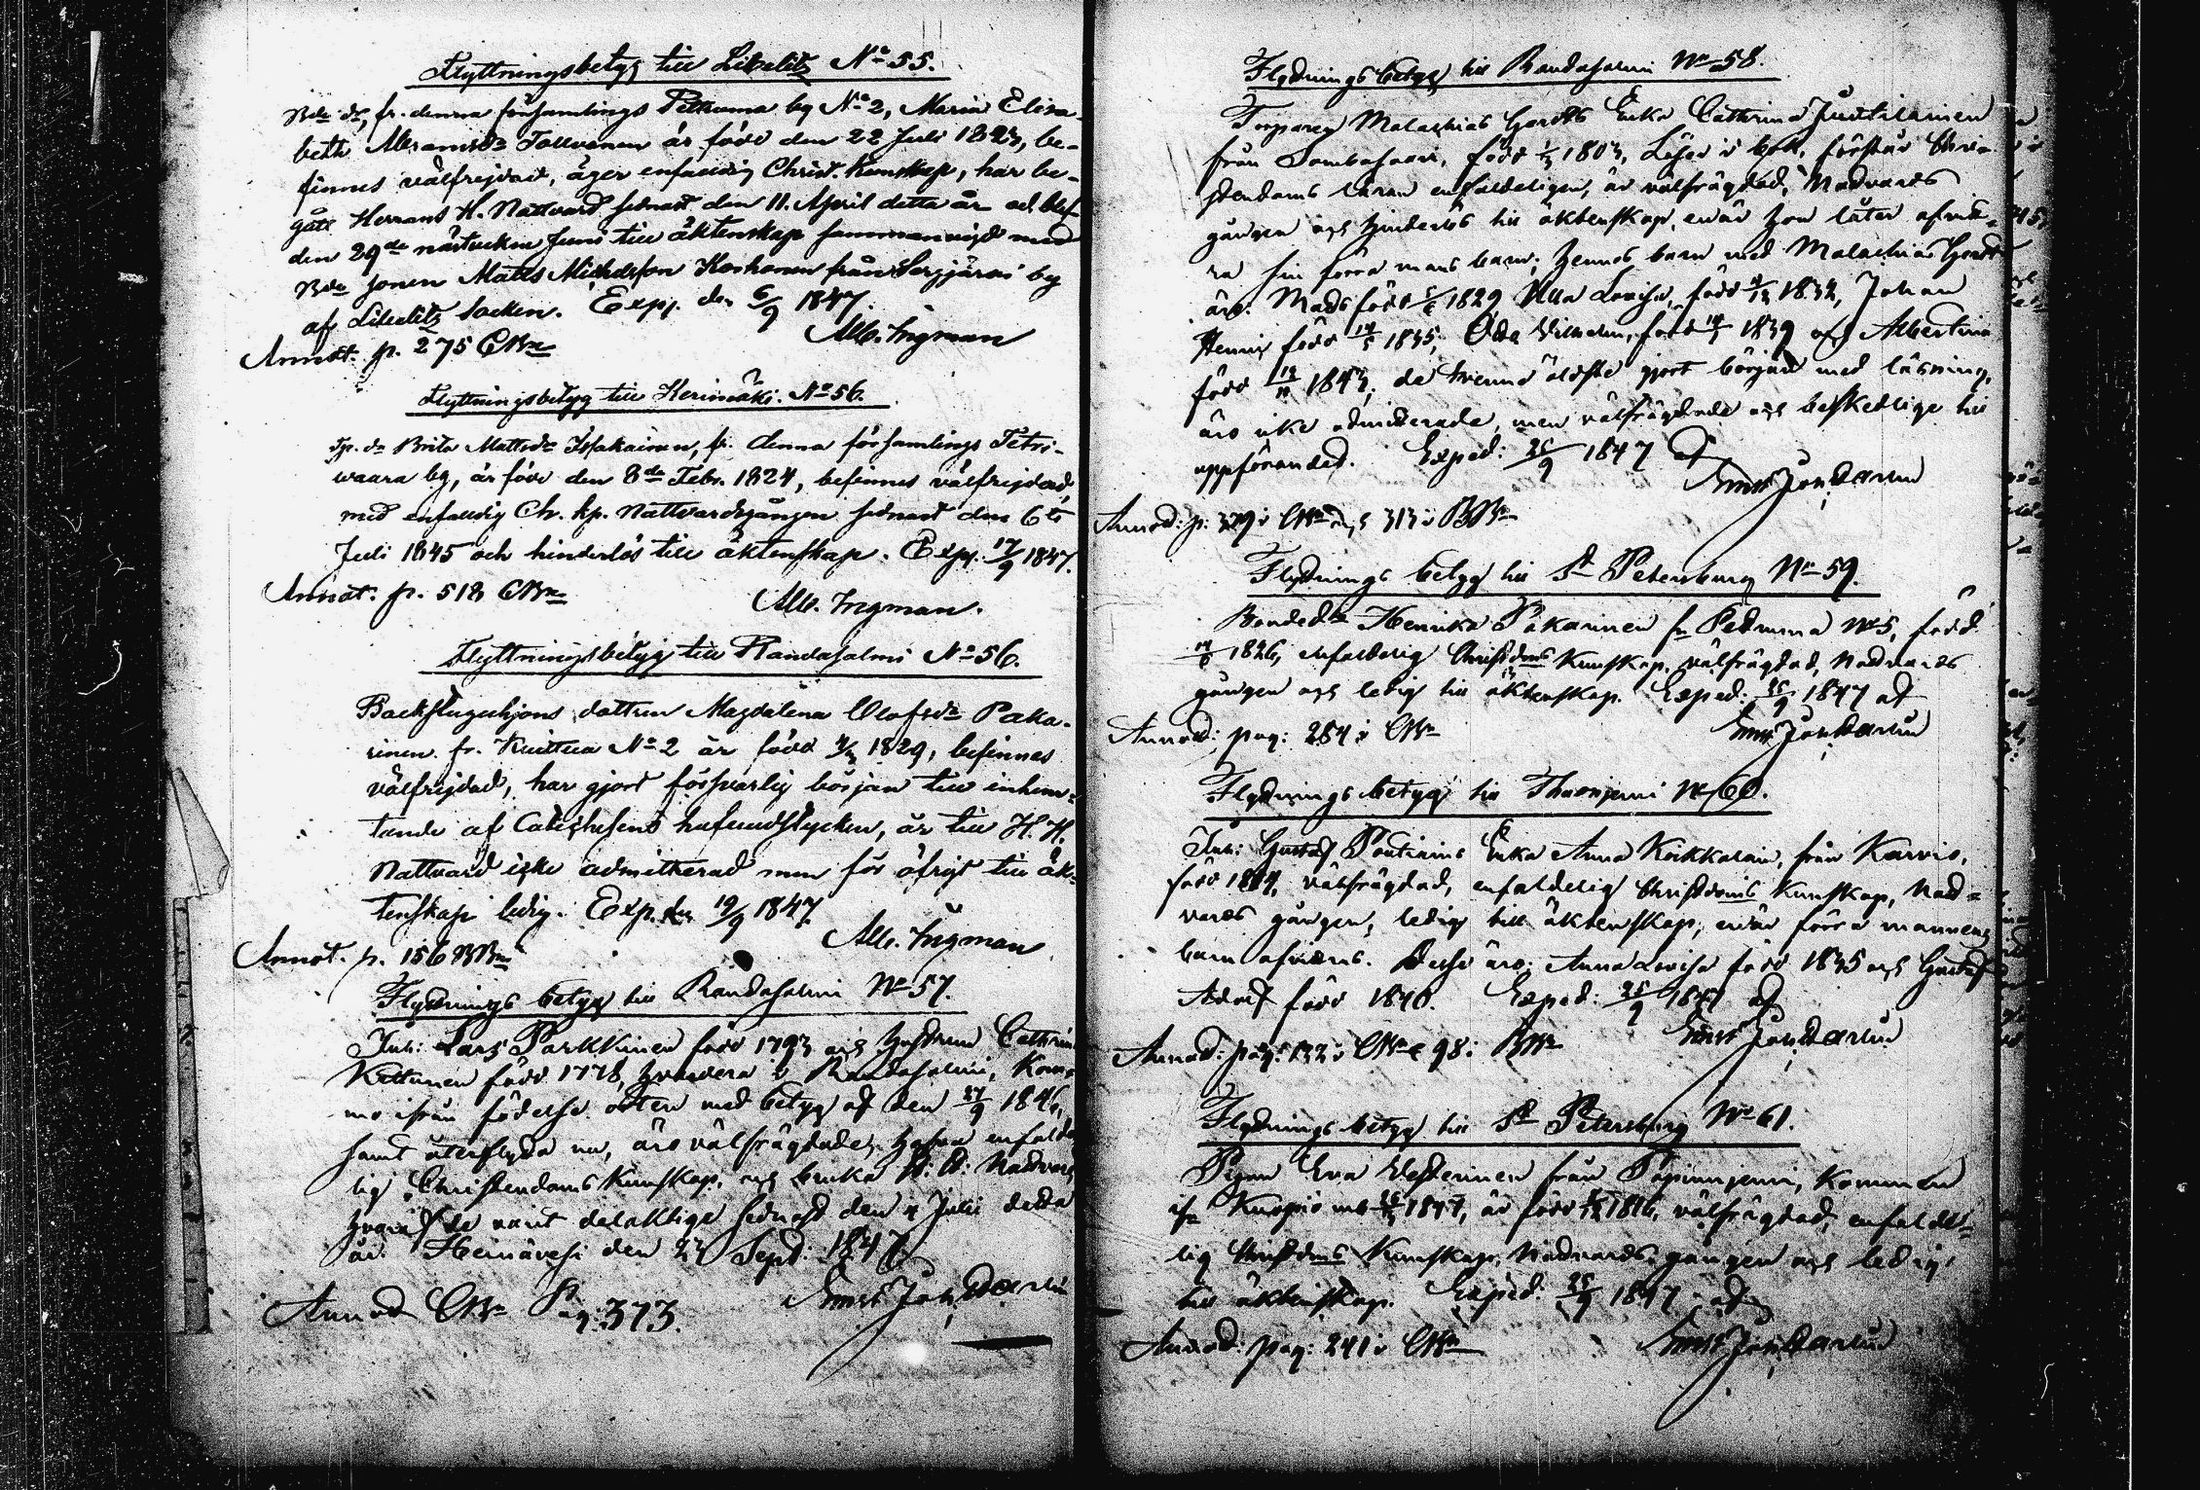 Flyttningsbetyg till Libelitz No 55.
Bde dr, fr. denna församlings Petruma by No 2, Maria Elisa-
beth Abramsdr Tollvanen är född den 22 Juli 1823, be-
finnes välfrejdad, äger enfaldig Christ. kunskap, har be-
gått Herrans H. Nattvard sednast den 11. April detta år och blef
den 29de nästvekne Juni till äktenskap sammanvigd med
Bde sonen Matts Michelsson Korhonen från Sergjärvi by
af Libelitz Socken. Exp. den 6/9 1847.
Alb. Ingman
Annot. p. 275 CBn
Flyttningsbetyg till Kerimäki No 56.
Tp. dr Brita Mattsdr Issakainen, fr. denna församlings Petri-
waara by, är född den 8de Febr. 1824, befinnes välfrejdad,
med enfaldig Ch. kp. Nattvardsgången sednast den 6te
Juli 1845 och hinderlös till äktenskap. Exp. 17/9 1847.
Annot. p. 518 CBn
Alb. Ingman.
Flyttningsbetyg till Randasalmi No 56.
Backstuguhjons dottren Magdalena Olofsdr Paka-
rinen fr. Kuittua No 2 är född 1829, befinnes
välfrejdad, har gjort försvarlig början till inhem-
tande af Catechesens hufvudstycken, är till H. H.
Nattvard icke admitterad men för öfrigt till äk-
tenskap ledig. Exp. den 19/9 1847.
Alb. Ingman
Annot. p. 156 BBn
Flyttnings betyg till Randasalmi No 57.
Inh: Lars Parkkinen född 1793 och hustrun Cathrin
Kettunen född 1778, hvardera i Randasalmi, Kom-
ne ifrån födelse orten med betyg af den 27/9 1846,
samt återflytta nu, äro välfrägdade, hafva enfald
lig Christendoms Kunskap, och bruka H. H. Nattvard
hvaraf de varit delaktige sednast den 4 Julii detta
år. Heinävesi den 23 Sept: 1847.
Annot CBn Pag. 373.
Flyttnings betyg till Randasalmi No 58.
Torparen Malachias Hordts Enka Cathrina Juutilainen
från Sombasaari, född 1803, Läser i bok, förstår Chri-
stendoms läran enfaldeligen, är välfrägdad, Nattvards
gången och hinderlös till äktenskap, enär hon låter afvit-
ra sin förra mans barn; hennes barn med Malachias Hordt
äro: Mads född 1829 Ulla Lovisa, född 1832, Johan
Henric född 1835, Otto Wilhelm, född 1839 och Albertina
född 1843, de trenne äldste gjort början med läsning,
äro icke admitterade, men välfrägdade och beskedlige till
uppförandet. Exped: 25/9 1847 af
Annot: p: 379 i CBn och 313 i BBn
Flyttnings betyg till St Petersburg No 59.
Bondedr Henrika Pakarinen fr Petruma No 5, född
1826, enfaldelig Christdoms Kunskap, välfrägdad, Nattvards
gången och ledig till äktenskap. Exped: 25/9 1847 af
Annot: pag: 284 i CBn
Flyttnings betyg till Thusniemi No 60.
Inh: Gustaf Pontinius Enka Anna Kokkalain, från Karvio,
född 1804, välfrägdad, enfaldelig Christdoms Kunskap, Natt-
vards gången, ledig till äktenskap, enär förra mannens
barn afvittras. Desse äro: Anna Lovisa född 1835 och Gustaf
Adolf född 1840. Exped: 25/9 1847 af
Annot: pag: 132 i CBn & 98 i BBn
Flyttnings betyg till St Petersburg No 61.
Pigan Eva Westerinen från Papinniemi, Kommen
ifr Kuopio 1847, är född 1816, välfrägdad, enfalde-
lig Christdoms Kunskap, Nattvards gången och ledig
till äktenskap. Exped: 25/9 1847 af
Annot: pag: 241 i CBn